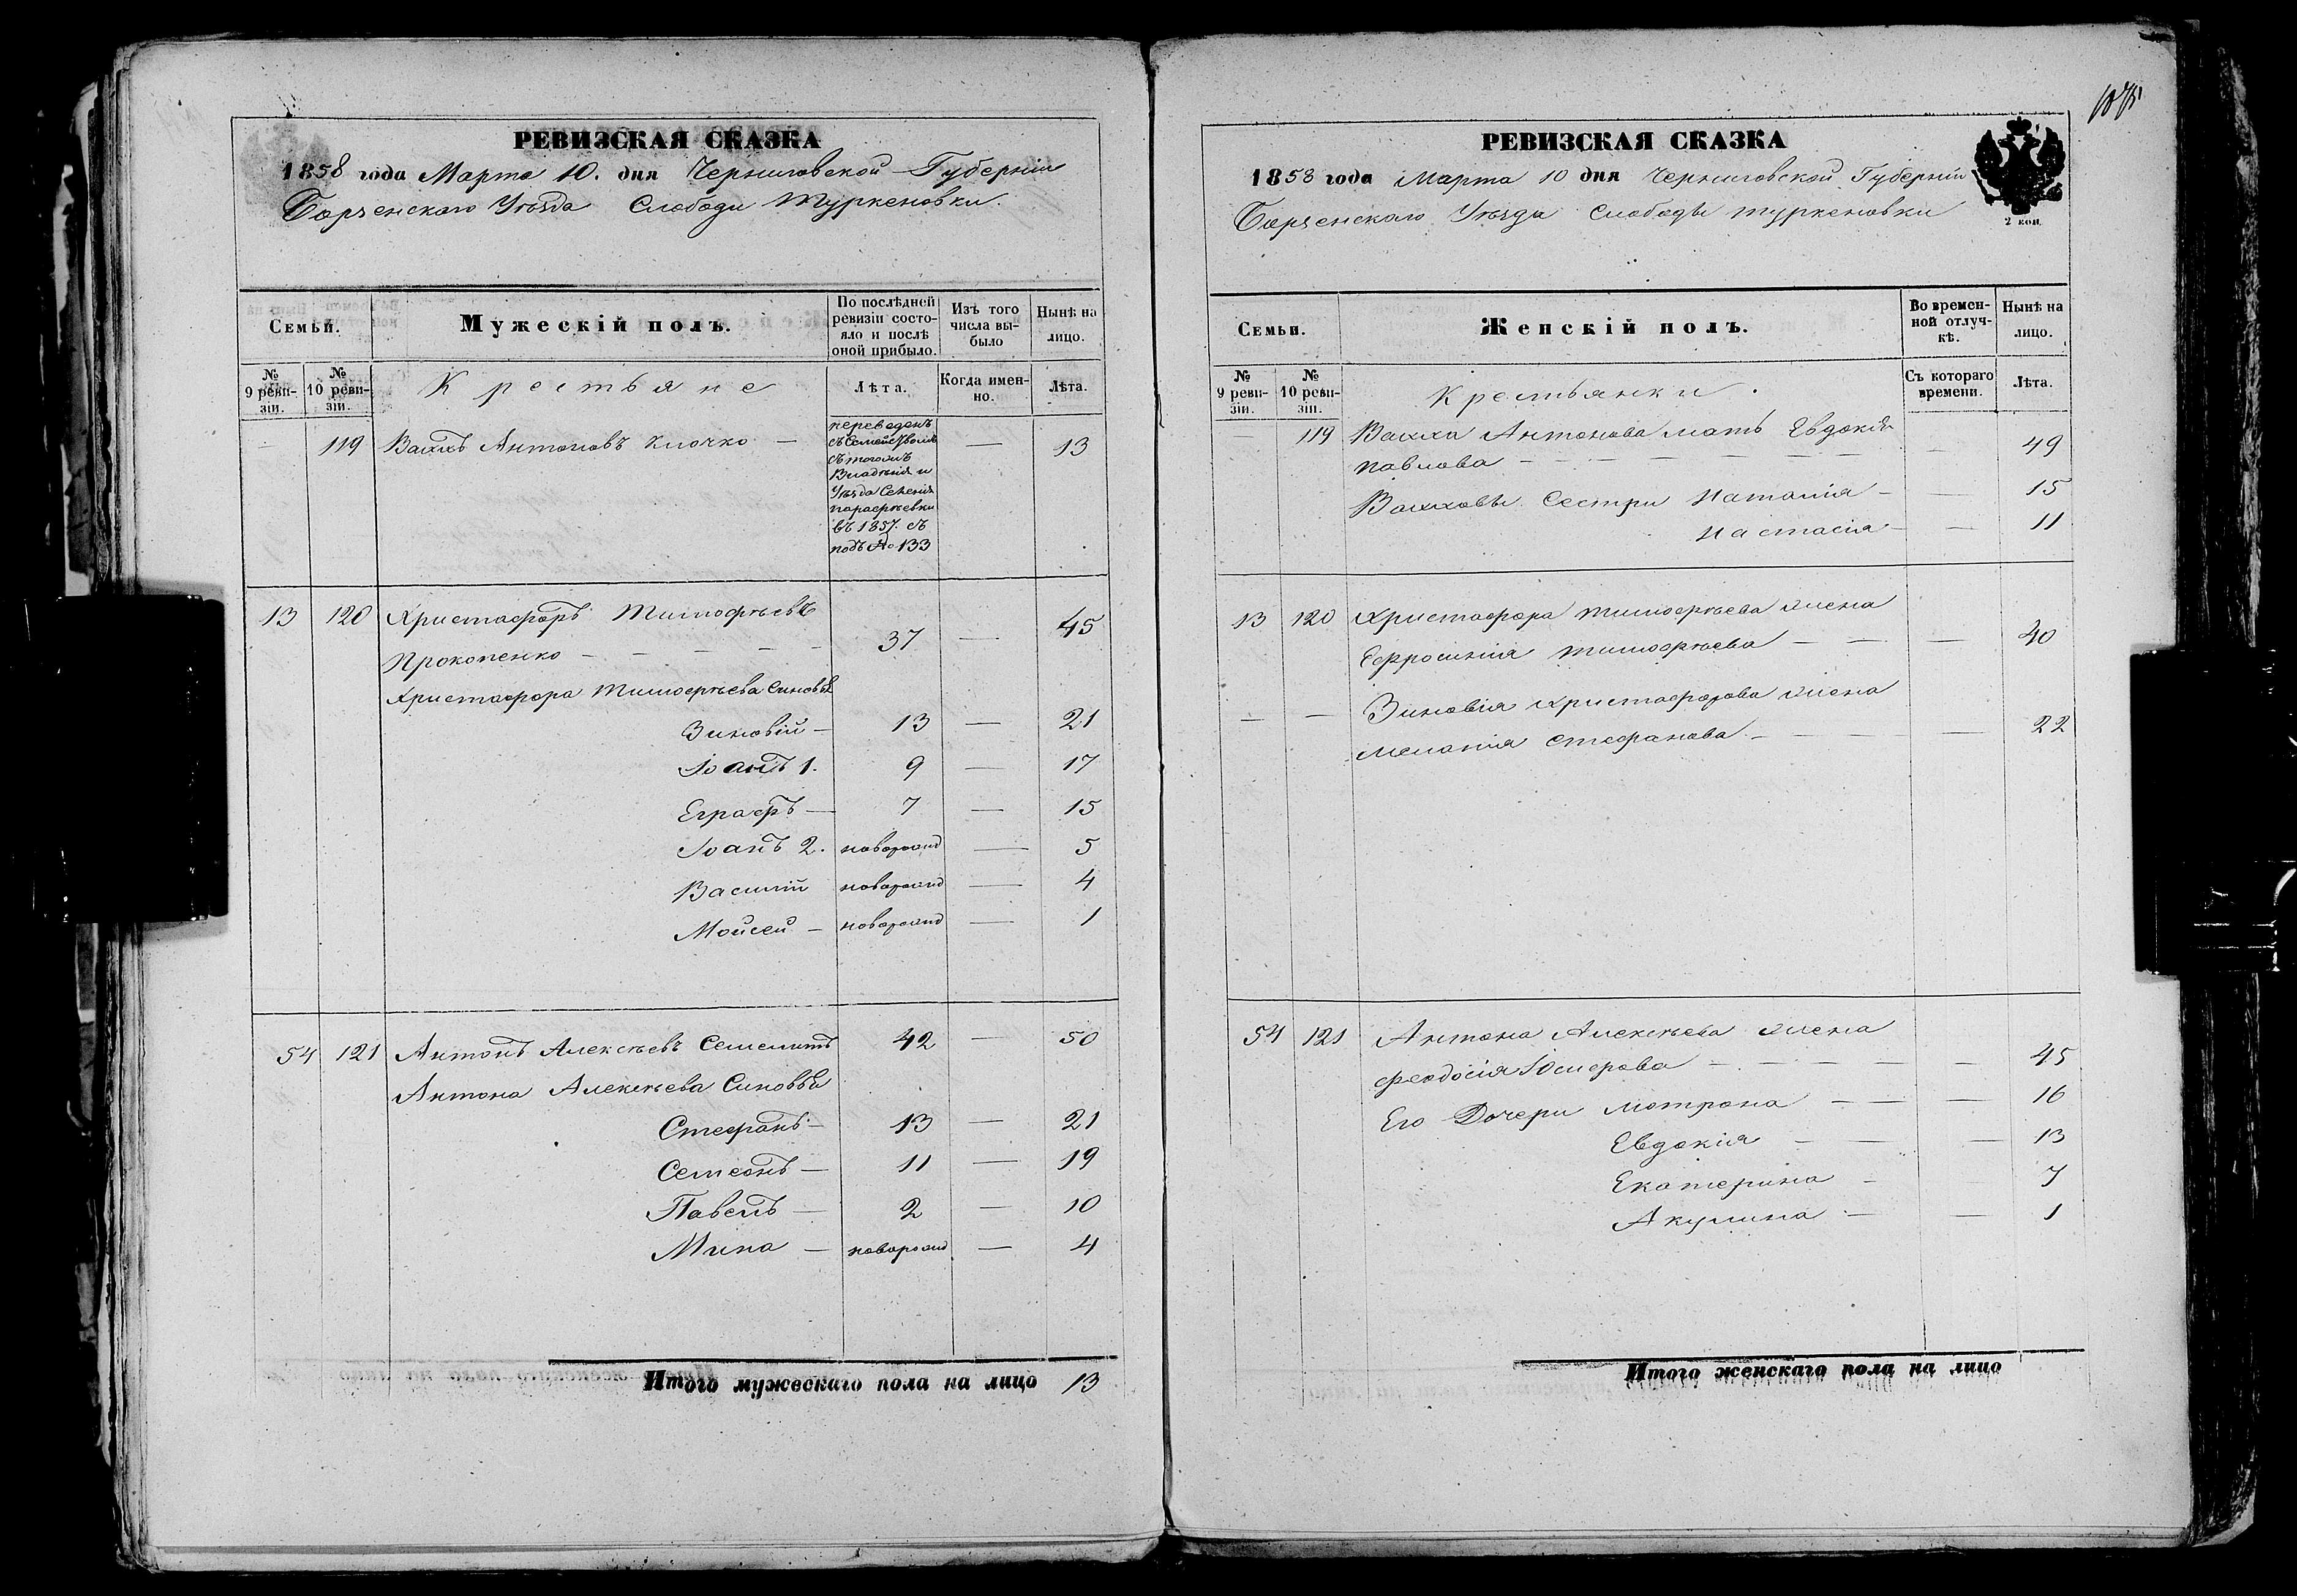 РЕВИЗСКАЯ СКАЗКА
1858 года Марта 10. дня Черниговской Губерніи
Борзенскаго Уѣзда Слободи Туркеновки.
Семьи.
Мужескій полъ.
По послѣдней ревизіи состояло и послѣ оной прибыло.
Изъ того числа выбыло
Нынѣ на лицо.
№ 9 ревизіи.
№ 10 ревизіи.
Крестьяне
Лѣта.
Когда именно.
Лѣта.
— 119 Вакхъ Антоновъ Клочко — — 13
переведенъ
съ Семействомъ
съ тогожъ
Владѣнія и
Уѣзда Селенія
Парафѣевки
въ 1857. съ
подъ № 133
13 120 Христафоръ Тимофѣевъ
Прокопенко — — — — — 37 — 45
Христафора Тимофѣева Синовья
Зиновій — 13 — 21
Іоанъ 1. 9 — 17
Еграфъ — 7 — 15
Іоанъ 2. новорожд — 5
Василій новорожд — 4
Мойсей — новорожд — 1
54 121 Антонъ Алексѣевъ 42 — 50
Антона Алексѣева Синовья
Стефанъ — 13 — 21
Семеонъ — 11 — 19
Павелъ — 2 — 10
Мина — новорожд — 4
Итого мужескаго пола на лицо 13
РЕВИЗСКАЯ СКАЗКА
1858 года Марта 10 дня Черниговской Губерніи
Борзенскаго Уѣзда Слободы Туркеновки
2 коп.
Семьи.
Женскій полъ.
Во временной отлучкѣ.
Нынѣ на лицо.
№ 9 ревизіи.
№ 10 ревизіи.
Крестьянки.
Съ котораго времени.
Лѣта.
— 119 Вакха Антонова мать Евдокія
Павлова — — — — — — — 49
Вакховы Сестри Наталія — — 15
Настасія — — 11
13 120 Христафора Тимофѣева жена
Ефросинія Тимофѣева — — — 40
— — Зиновія Христафорова жена
Меланія Стефанова — — — — 22
54 121 Антона Алексѣева жена
Феодосія Юсифова — — — — — 45
Его Дочери Мотрона — — — 16
Евдокія — — — 13
Екатерина — 7
Акулина — — 1
Итого женскаго пола на лицо